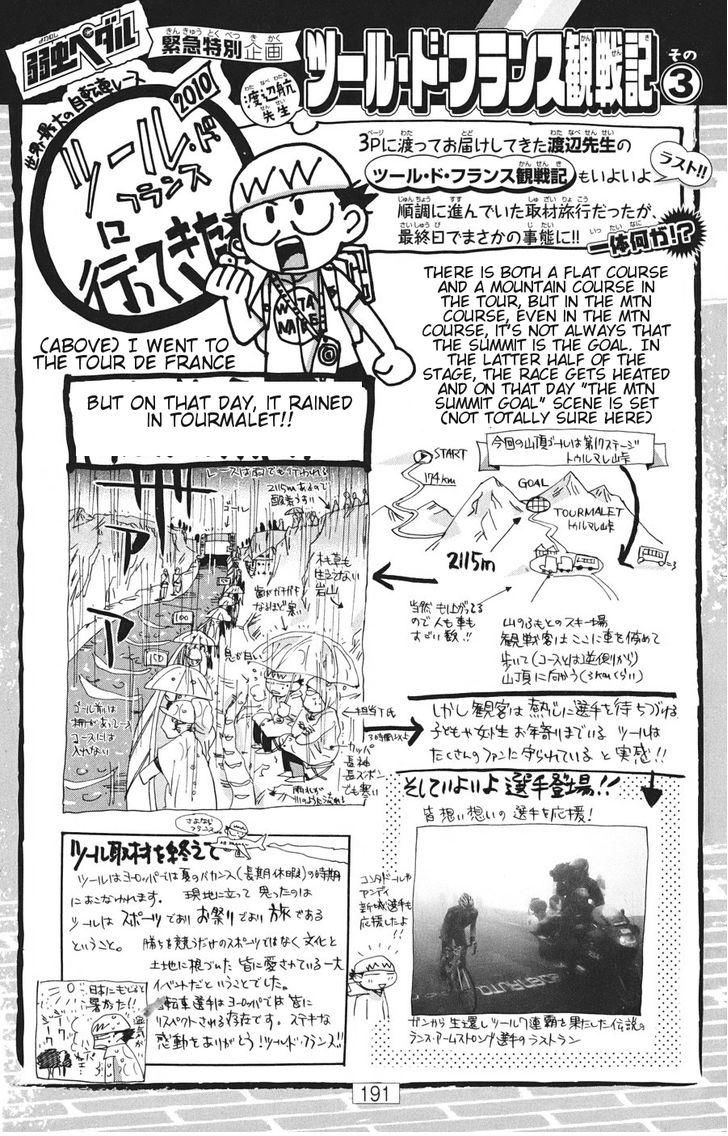 弱虫ペダル
緊急特別企画
渡辺航先生
ツール・ド・フランス観戦記
その3
世界最大の自転車レース
2010
ツール・ド
フランス
に
行ってきた
3Pに渡ってお届けしてきた渡辺先生の
ツール・ド・フランス観戦記もいよいよ
ラスト!!
順調に進んでいた取材旅行だったが、
最終日でまさかの事態に!!
一体何が!?
(ABOVE) I WENT TO
THE TOUR DE FRANCE
THERE IS BOTH A FLAT COURSE
AND A MOUNTAIN COURSE IN
THE TOUR, BUT IN THE MTN
COURSE, EVEN IN THE MTN
COURSE, IT'S NOT ALWAYS THAT
THE SUMMIT IS THE GOAL. IN
THE LATTER HALF OF THE
STAGE, THE RACE GETS HEATED
AND ON THAT DAY "THE MTN
SUMMIT GOAL" SCENE IS SET
(NOT TOTALLY SURE HERE)
BUT ON THAT DAY, IT RAINED
IN TOURMALET!!
今回の山頂ゴールは第17ステージ
トゥルマレ山峠
START
174km
GOAL
TOURMALET
トゥルマレ山峠
2115m
当然もり上がってる
ので人も車も
すごい数!!
山のふもとのスキー場
観戦客はここに車を停めて
歩いて(コースとは逆側から)
山頂に向かう(3kmくらい)
レースは雨でも行われる
2115mあるので
酸素うすい
ゴール
木も草も
生えてない
岩山
歯がガチガチ
なるほど寒い
息が白い
ゴール前は
柵があってレース
コースには
入れない
担当T氏
3時間以上
カッパ
長袖
長ズボン
でも寒い
しかし観客は熱心に選手を待ちつづける
子どもや女性お年寄りまでいる ツールは
たくさんのファンに守られている と実感!!
そしていよいよ選手登場!!
皆想い想いの選手を応援!
コンタドールや
アンディ
新城選手も
応援したよ
!!
ガンから生還しツール7連覇を果たした伝説の
ランス・アームストロング選手のラストラン
さよなら
フランス
ツール取材を終えて
ツールはヨーロッパでは夏のバカンス(長期休暇)の時期
におこなわれます。 現地に立って思ったのは
ツールはスポーツであり お祭りであり 旅である
ということ。 勝ちを競うだけのスポーツではなく文化と
土地に根づいた皆に愛されている一大
イベントだということでした。
自転車選手はヨーロッパでは皆に
リスペクトされる存在です。ステキな
感動をありがとう!ツール・ド・フランス!!
日本にもどると
暑かった!!
191